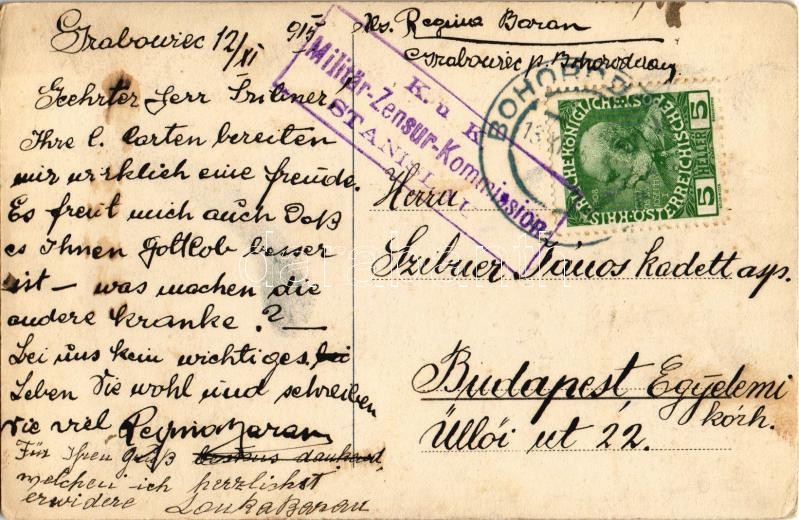 Grabowiec 12/XI 915
Geehrter Herr Sribner
Ihre l. Carten bereiten
mir wirklich eine freude.
Es freut mich auch daß
es Ihnen gottlob besser
ist – was machen die
andere kranke? –
bei uns kein wichtiges.
Leben Sie wohl und schreiben
Sie viel Regina Baran
Für Ihren gruß
welchen ich herzlichst
erwidere Lonka Baran
Regina Baran
Grabowiec p.
K. u. K.
Militär-Zensur-Kommission
STANISLAU
BOHOROD
KAISERLICHE KÖNIGLICHE ÖSTERREICHISCHE
5 HELLER 5
Herra
Szibner János kadett asp.
Budapest, Egyetemi
kórh.
Üllői ut 22.
darabanth